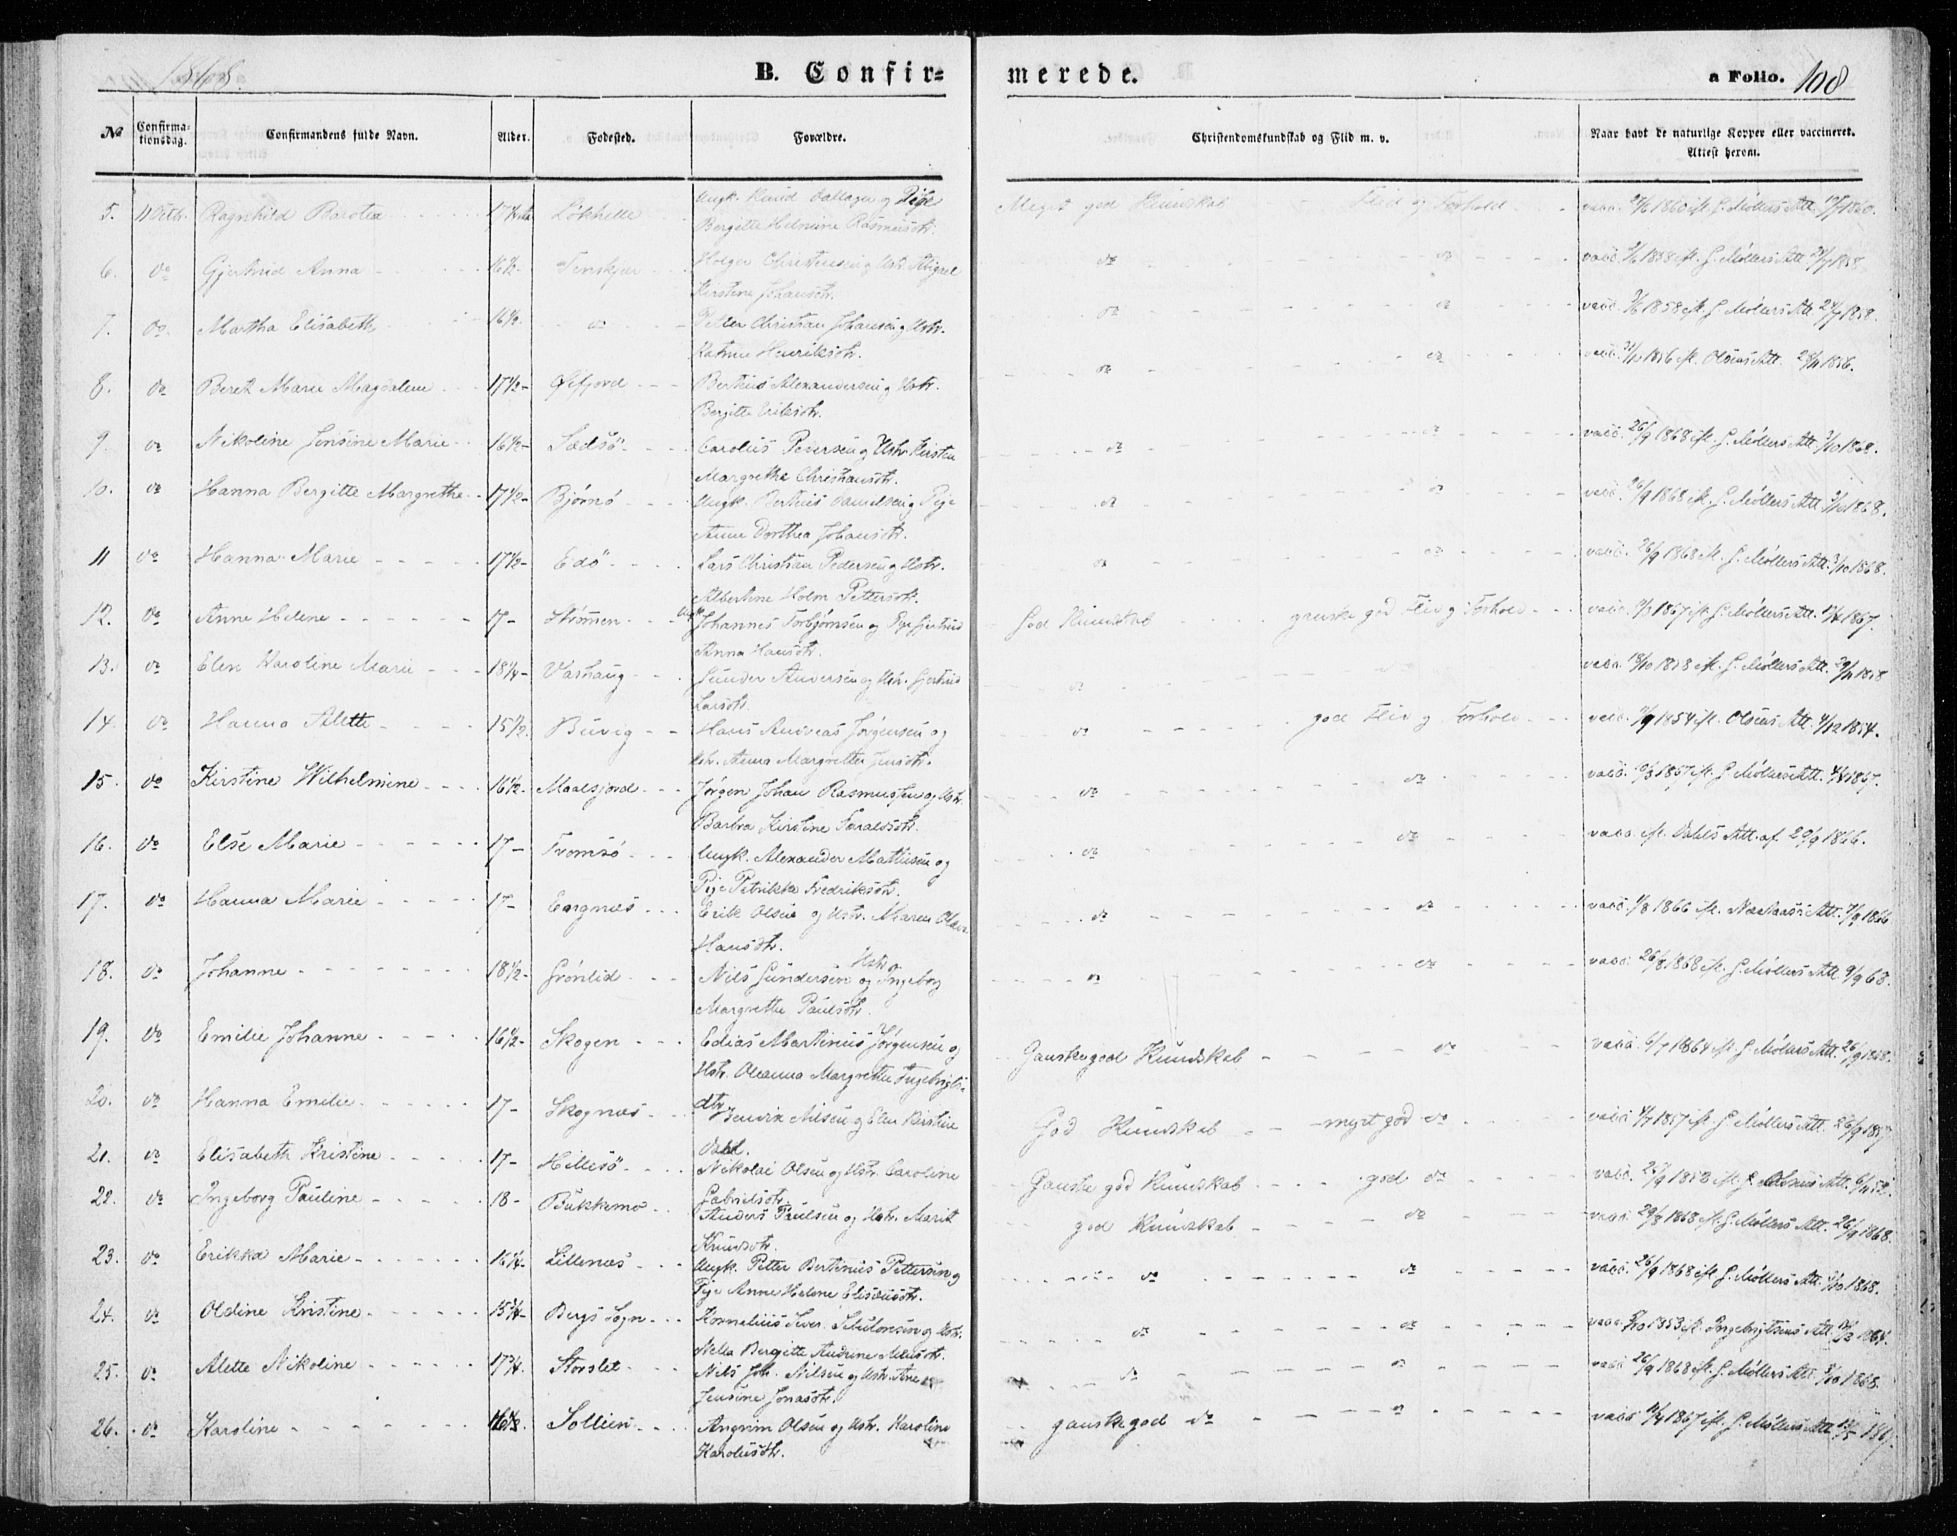 1868.
B. Confir=
merede.
a Folio. 108
No
Confirma-
tionsdag.
Confirmandens fulde Navn.
Alder.
Fødested.
Forældre.
Christendomskundskab og Flid m. v.
Naar havt de naturlige Kopper eller vaccineret.
Attest herom.
5. 11 Octb. Ragnhild Barotea 17 Løkhelle Ungk. Knud og Pige
Bergitte Helmine Rasmusdtr.
Meget god Kundskab Flid og Forhold vacc. 1860 ifl. G. Møllers Att. 1860.
6. do Gjertrud Anna 16½ Tenskjær Holger Christensen og Hstr. Abigael
Kirstine Johansdtr.
do do vacc. 1858 ifl. G. Møllers Att. 1858.
7. do. Martha Elisabeth 16½ do Petter Christian Johansen og Hstr.
Katrine Henriksdtr.
do do vacc. 1858 ifl. G. Møllers Att. 24/7 1858.
8. do Beret Marie Magdalene 17½ - Gifjord Bertheus Alexandersen og Hstr.
Bergitte Eriksdtr.
do do vacc. 1856 ifl. Olsens Att. 1856.
9. do Nikoline Jensine Marie 16½ - Sædsö Carolius Pedersen og Hstr. Kirsten
Margrethe Christiansdtr.
do do vacc. 26/9 1868 ifl. G. Møllers Att. 3/10 1868.
10. do Hanna Bergitte Margrethe 17½ - Bjørnö Ungk. Bertheus Danielsen og Pige
Anne Dorthea Johansdtr.
do do vacc. 26/9 1868 ifl. G. Møllers Att. 3/10 1868.
11 do Hanna Marie 17½ - Edö Lars Christian Pedersen og Hstr.
Albertine Holm Pettersdtr.
do do vacc. 26/9 1868 ifl. G. Møllers Att. 3/10 1868.
12. do Anne Helene 17 - Strömen Ungk. Johannes Torbjørnsen og Pige Gjertrud
Anna Hansdtr.
God Kundskab ganske god Flid og Forhold vacc. 1867 ifl. G. Møllers Att. 1867.
13. do Elen Karoline Marie 18¼ - Vashaug Gunder Andersen og Hstr. Gjertrud
Larsdtr.
do vacc. 18/10 1858 ifl. G. Møllers Att. 1858
14. do Hanna Alette 15½ Buvig Hans Andreas Jørgensen og
Hstr. Anna Margrethe Jensdtr.
do god Flid og Forhold vacc. 1854 ifl. Olsens Att. 4/12 1854.
15. do Kirstine Wilhelmine 16½ - Maalsjord Jørgen Johan Rasmussen og Hstr.
Barbra Kirstine Haraldsdtr.
do do vacc. 1857 ifl. G. Møllers Att. 1857.
16. do Else Marie 17 - Tromsö Ungk. Alexander Mathisen og
Pige Petrikka Fredriksdtr.
do do vacc. ifl. Dahls Att. af 20/9 1866.
17. do Hanna Marie 17 - Engnæs Erik Olsen og Hstr. Maren Olava
Hansdtr.
do do vacc. 1/8 1866 ifl. Att. 7/9 1866
18. do Johanne 18½ - Grönlid Nils Gundersen og Hstr. Ingeborg
Margrethe Paulsdtr.
do do vacc. 26/8 1868 ifl. G. Møllers Att. 9/9 68.
19. do Emilie Johanne 16½ - Skogen Edias Martinus Jørgensen og
Hstr. Oleanna Margrethe Ingebrigts-
dtr.
Ganske god Kundskab do vacc. 6/7 1864 ifl. G. Møllers Att. 26/9 1868.
20. do Hanna Emilie 17 - Skognæs Henrik Nilsen og Elen Kirstine
Dahl.
God Kundskab meget god do vacc. 1857 ifl. G. Møllers Att. 26/9 1857
21. do Elisabeth Kristine 17 - Hillesö Nikolai Olsen og Hstr. Caroline
Gabrielsdtr.
Ganske god Kundskab god do vacc.
22. do Ingeborg Pauline 18 - Bukkemo Anders Paulsen og Hstr. Marit
Knudsdtr.
god Kundskab do vacc. 29/8 1868 ifl. G. Møllers Att. 26/9 1868.
23. do Erikka Marie 16¼ - Lillenæs Ungk. Petter Bertinius Pettersen og
Pige Anne Helene Eliseusdtr.
do do vacc. 26/9 1868 ifl. G. Møllers Att. 3/10 1868.
24. do Oldine Kristine 15¾ - Bergs Sogn Kornelius Iver og Hstr.
Nella Bergitte Andrine Nilsdtr.
do do vacc. 1853 ifl. Ingebrigtsens Att.
25. do Alette Nikoline 17¾ - Storslet Nils Joh. Nilsen og Hstr. Ane
Jensine Jonasdtr.
do do vacc. 26/9 1868 ifl. G. Møllers Att. 3/10 1868.
26. do Karoline 16½ Sollien Angrim Olsen og Hstr. Karoline
Karolusdtr.
ganske god do do vacc. 1867 ifl. G. Møllers Att.